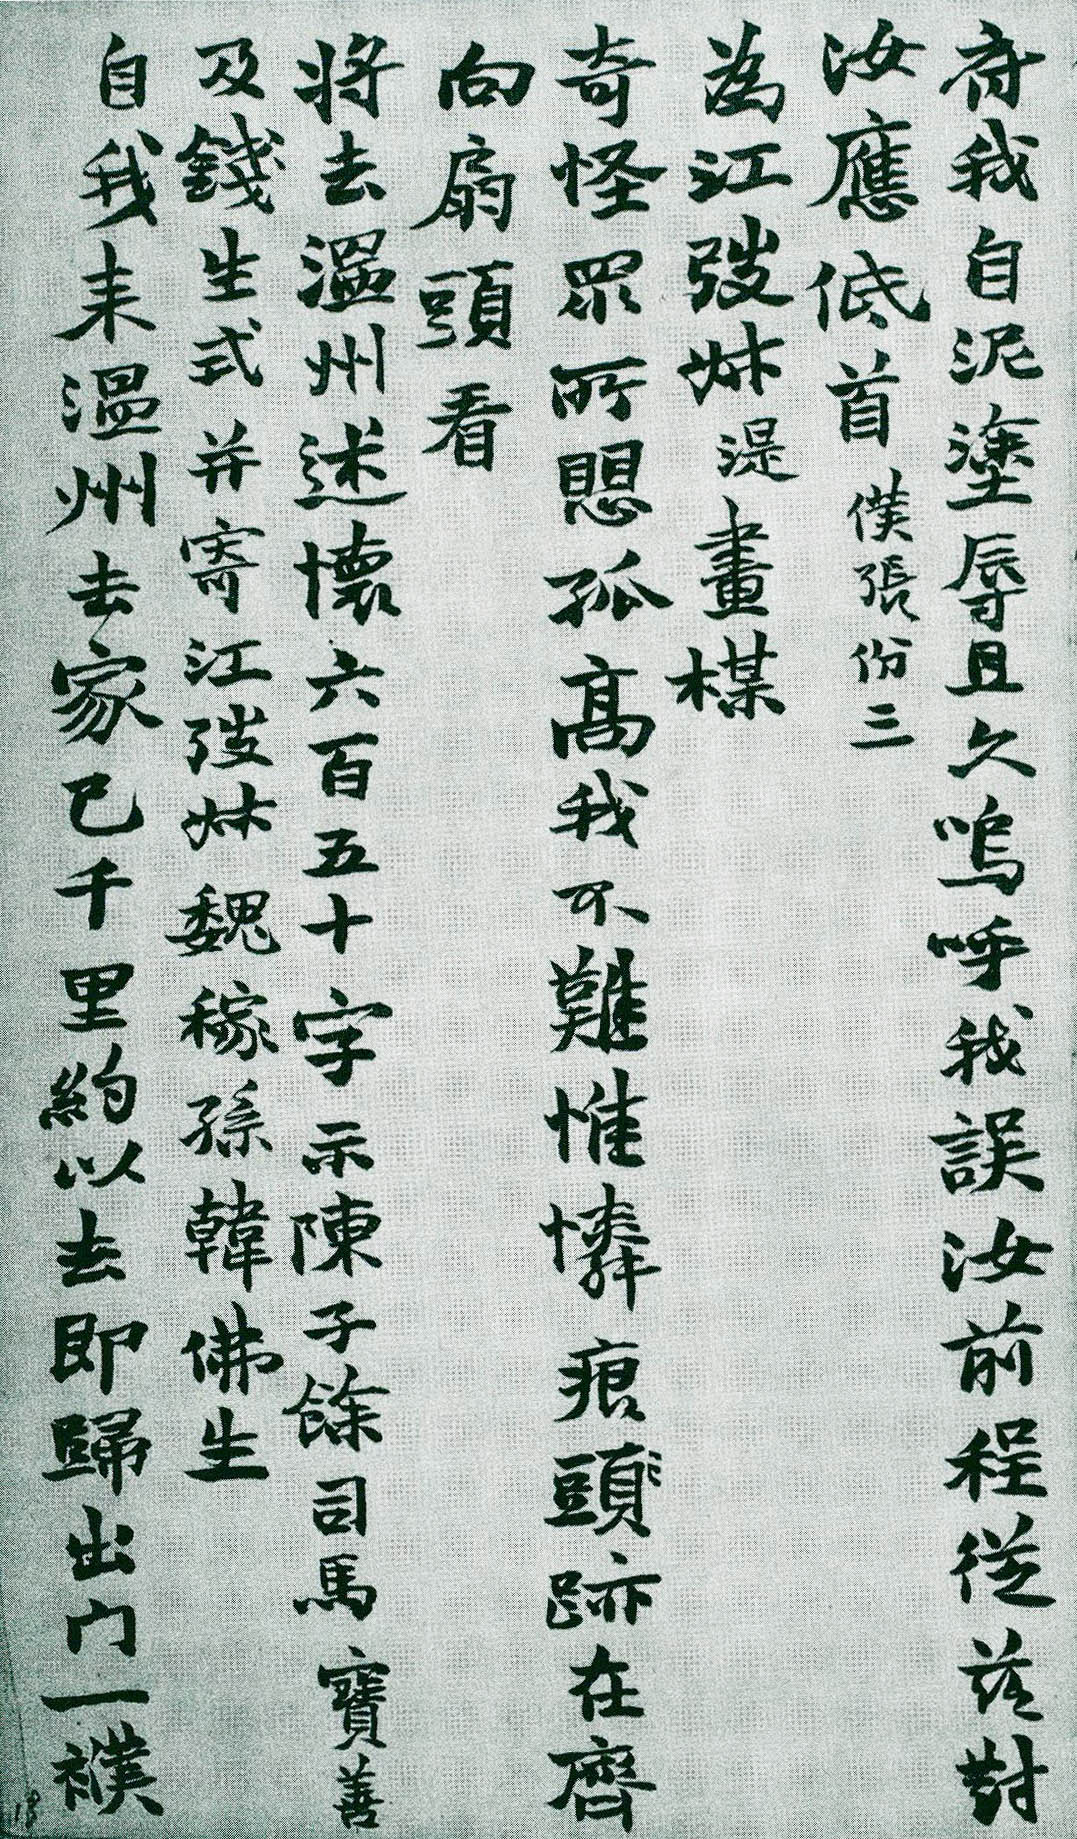 府我自泥塗辱且久嗚呼我誤汝前程從茲對
汝應低首僕張份三
為江弢叔湜畫楳
奇怪眾所愳孤高我不難惟憐痕頭跡在齊
向扇頭看
將去溫州述懷六百五十字示陳子餘司馬寶善
及錢生式并寄江弢叔魏稼孫韓佛生
自我来溫州去家已千里約以去即歸出门一襆